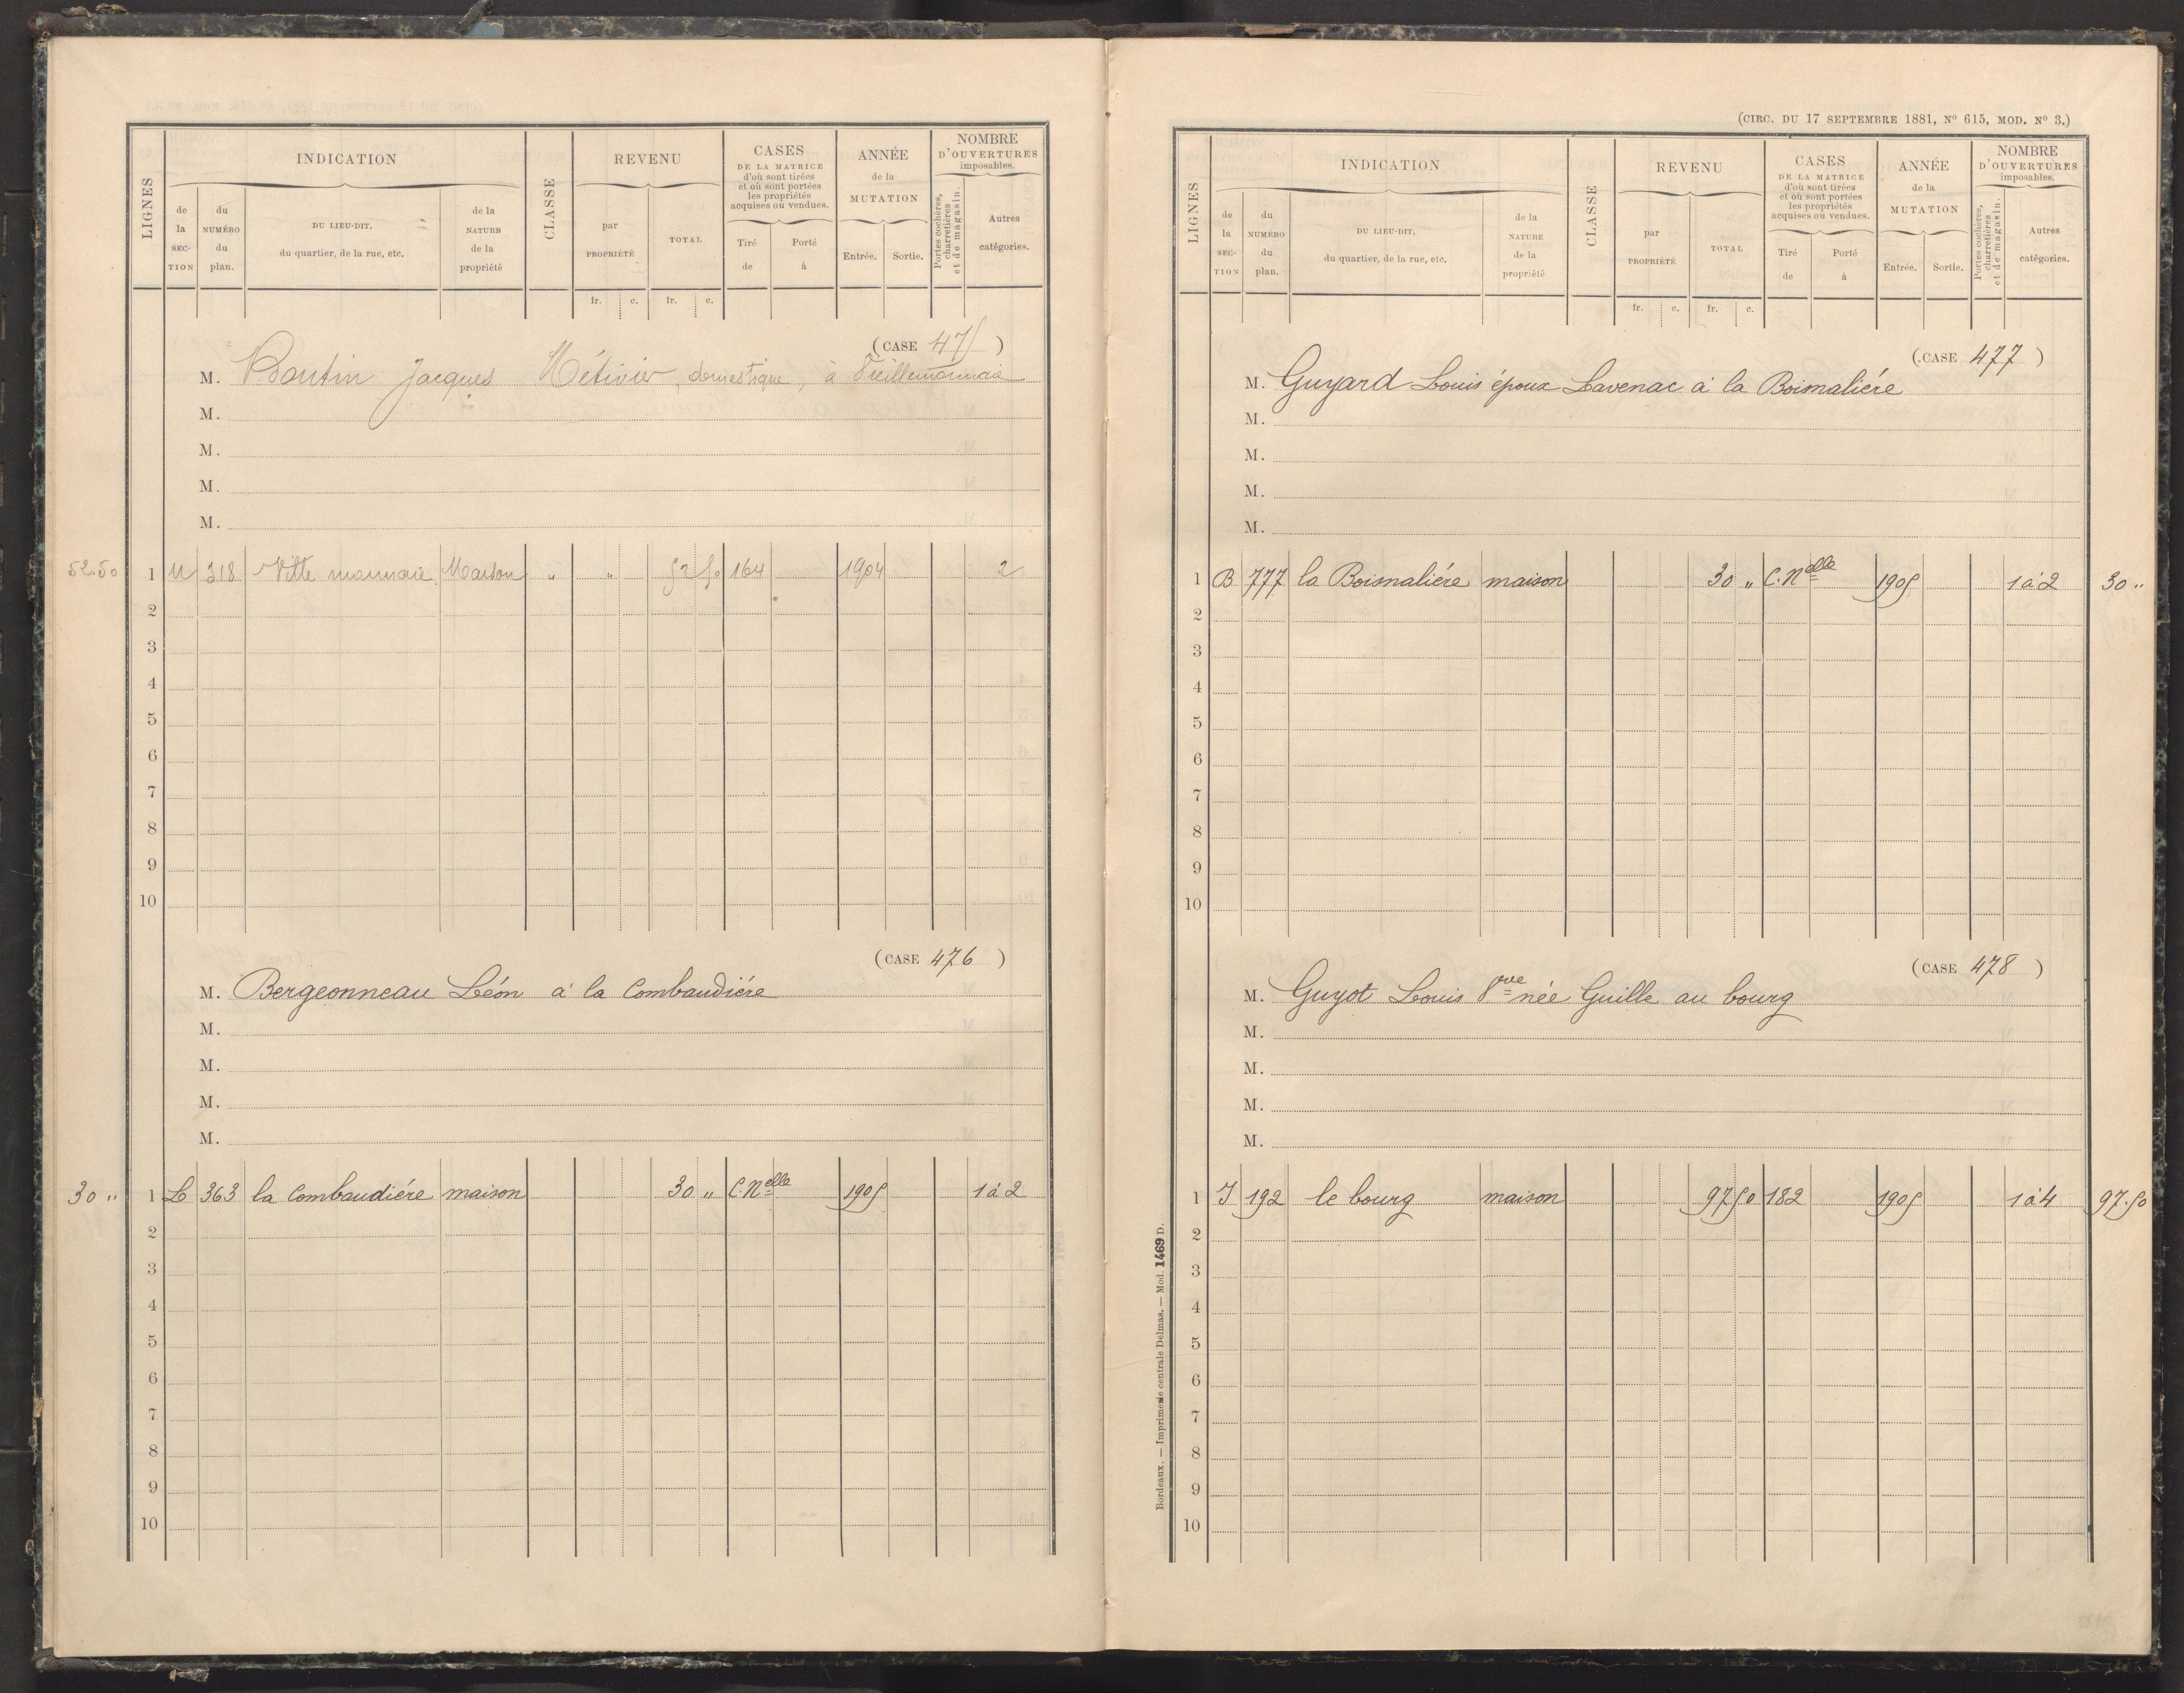 LIGNES
INDICATION
de la SECTION
du NUMÉRO du plan.
DU LIEU-DIT, du quartier, de la rue, etc.
de la NATURE de la propriété
CLASSE
REVENU
par PROPRIÉTÉ
TOTAL
CASES DE LA MATRICE d'où sont tirées et où sont portées les propriétés acquises ou vendues.
Tiré de
Porté à
ANNÉE de la MUTATION
Entrée.
Sortie.
NOMBRE D'OUVERTURES imposables.
Portes cochères, charretières et de magasin.
Autres catégories.
fr. c. fr. c.
(CASE 475)
M. Boutin Jacques Métivier, domestique, à Vieillemonnaie
M.
M.
M.
M.
52.50 1 N 318 Ville monnaie Maison " " 52 50 164 1904 2
2
3
4
5
6
7
8
9
10
(CASE 476)
M. Bergeonneau Léon à la Combaudiére
M.
M.
M.
M.
30 " 1 L 363 la Combaudiére maison 30 " C. Nelle 1905 1 à 2
2
3
4
5
6
7
8
9
10
(CIRC. DU 17 SEPTEMBRE 1881, Nº 615, MOD. Nº 3.)
LIGNES
INDICATION
de la SECTION
du NUMÉRO du plan.
DU LIEU-DIT, du quartier, de la rue, etc.
de la NATURE de la propriété
CLASSE
REVENU
par PROPRIÉTÉ
TOTAL
CASES DE LA MATRICE d'où sont tirées et où sont portées les propriétés acquises ou vendues.
Tiré de
Porté à
ANNÉE de la MUTATION
Entrée.
Sortie.
NOMBRE D'OUVERTURES imposables.
Portes cochères, charretières et de magasin.
Autres catégories.
fr. c. fr. c.
(CASE 477)
M. Guyard Louis époux Lavenac à la Boismaliére
M.
M.
M.
M.
1 B 777 la Boismaliére maison 30 " C. Nelle 1905 1 à 2 30 "
2
3
4
5
6
7
8
9
10
(CASE 478)
M. Guyot Louis Vve née Guille au bourg
M.
M.
M.
M.
1 J 192 le bourg maison 97 50 182 1905 1 à 4 97.50
2
3
4
5
6
7
8
9
10
Bordeaux. — Imprimerie centrale Delmas. — Mod. 1469 D.